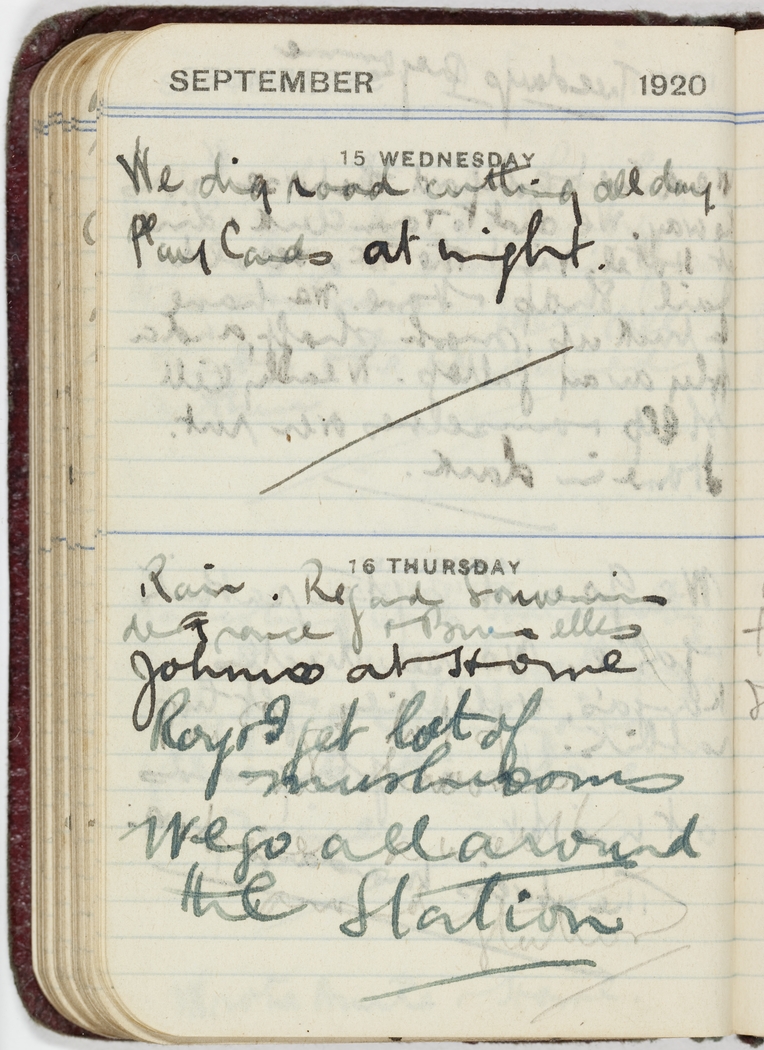 SEPTEMBER 1920
15 WEDNESDAY
We dig road cutting all day.
Play Cards at night.
16 THURSDAY
Rain. Read Souvenirs
de France & Bruxelles
at Home
Roy & I get lot of
mushrooms
We go all around
the Station